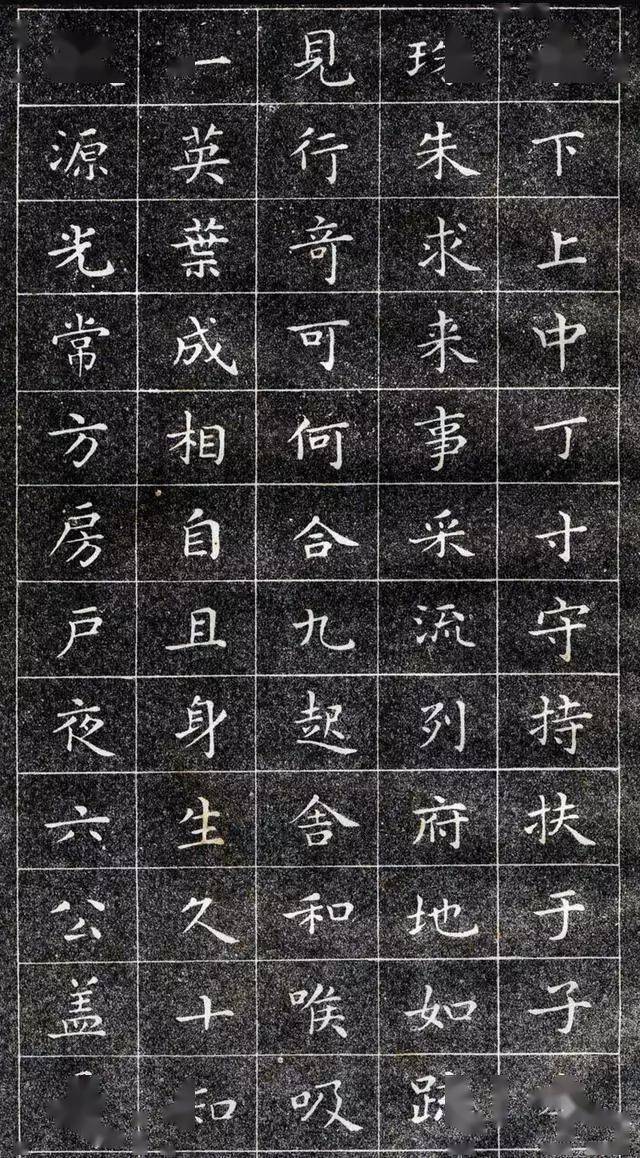 下上中丁寸守持扶于子
朱求来事采流列府地如
見行竒可何合九起舍和喉吸
一英葉成相自且身生久十
源光常方房户夜六公盖